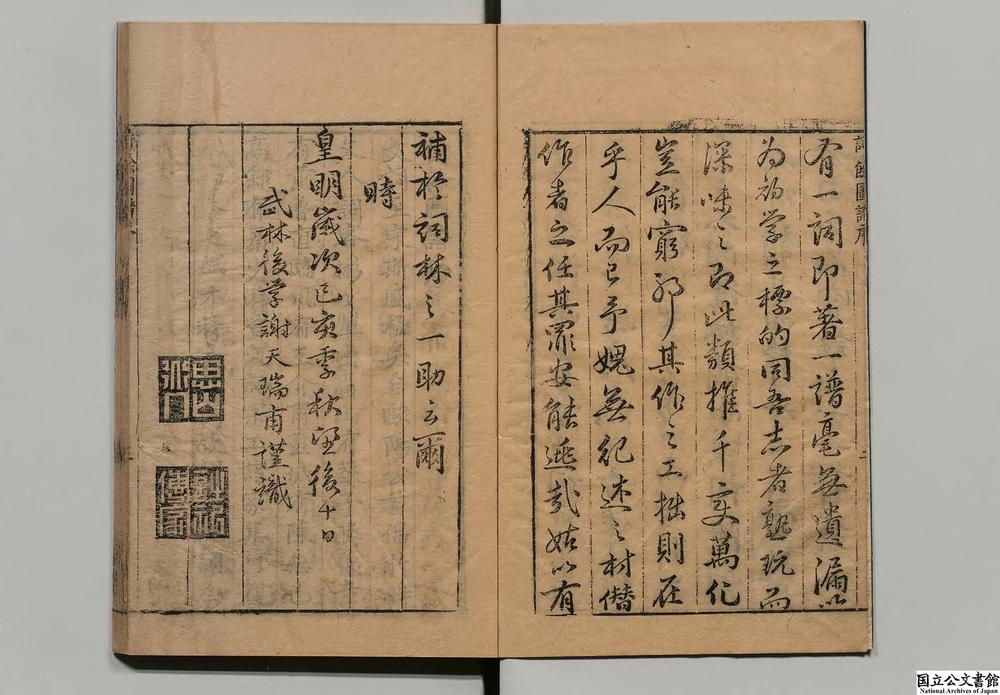 詩餘圖譜序
有一詞即著一譜毫無遺漏以
為初學之標的同吾志者熟玩而
深味之即此類推千変萬化
豈能窮耶其作之工拙則在
乎人而已予媿無紀述之材僣
作者之任其罪安能逃哉姑以有
補於詞林之一助云爾
時
皇明歲次己亥季秋望後十日
武林後學謝天瑞甫謹識
国立公文書館
National Archives of Japan